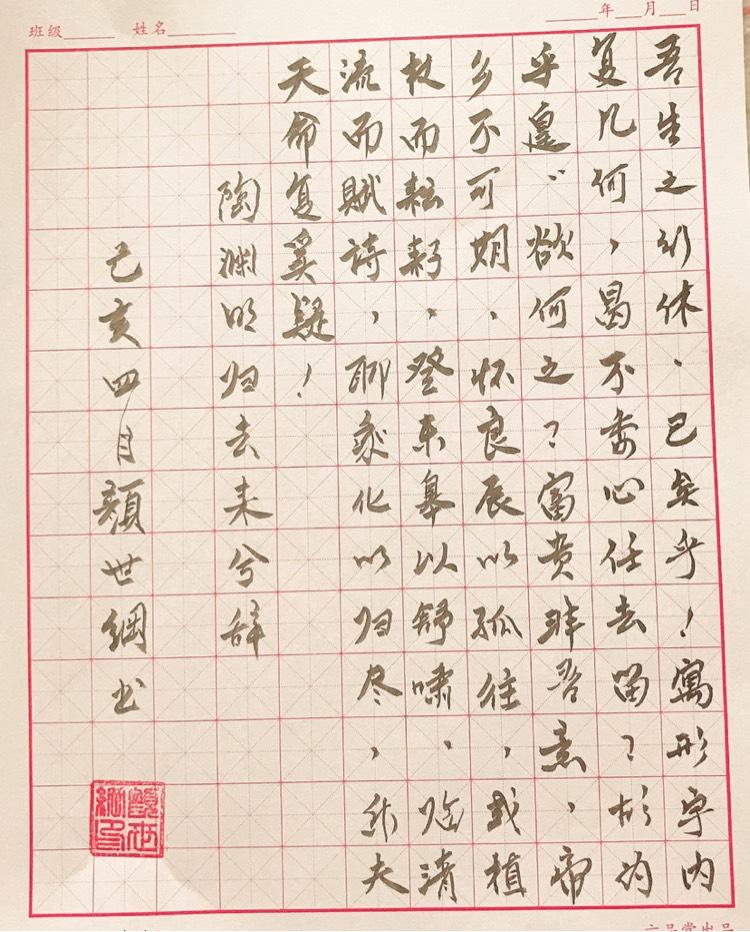 班级______ 姓名________
______年___月___日
吾生之行休、已矣乎！寓形宇内
复几何，曷不委心任去留？胡为
乎遑〻欲何之？富贵非吾意，帝
乡不可期、怀良辰以孤往，或植
杖而耘耔、登东皋以舒啸、临清
流而赋诗，聊乘化以归尽，乐夫
天命复奚疑！
陶渊明归去来兮辞
己亥四月顏世綱书
顏世綱印